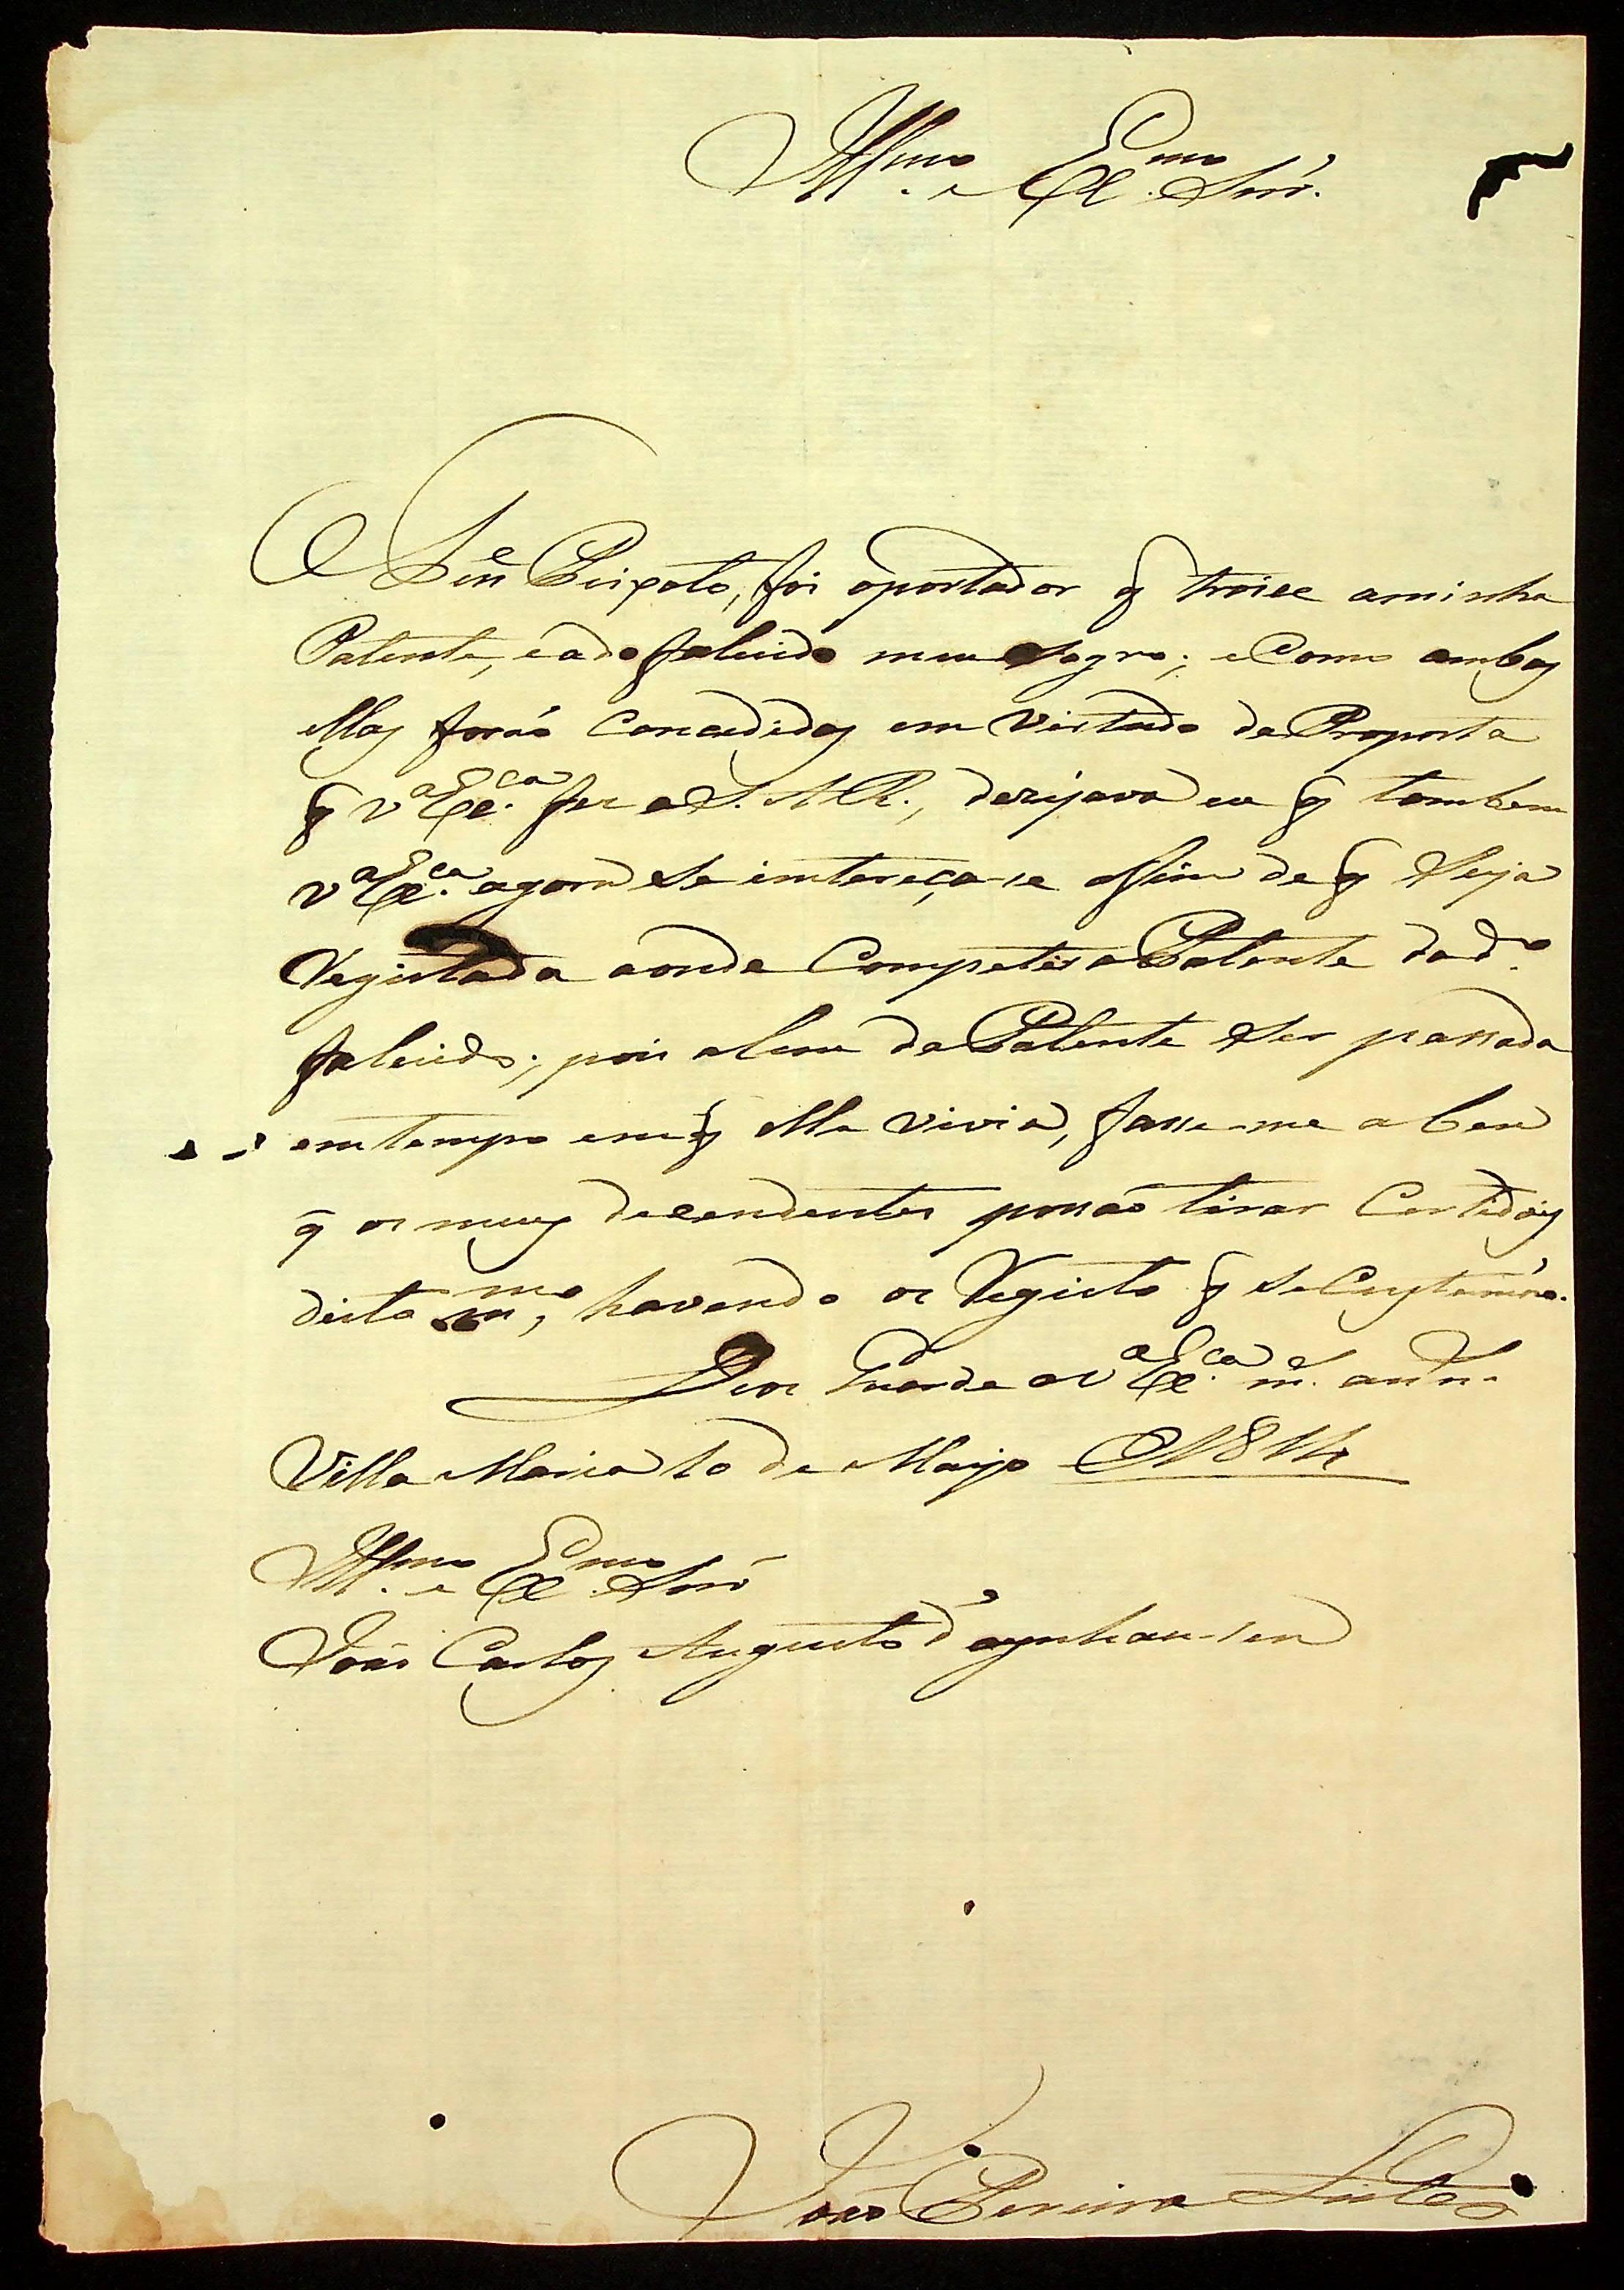 Illmo. e Exmo. Snr.
O Ten.e Peixoto, foi oportador q̃ troixe aminha
Patente, eado falecido meu Sogro; e Como ambas
ellas foraõ Concedidas em Virtude da Proposta
q̃ V.a Ex.ca fez a S. A. R., dezejava eu q̃ tambem
V.a Ex.ca agora Se intereça-se afim de q̃ Seja
Registada aonde Competir a Patente dod.o
falecido; pois alem da Patente Ser passada
emtempo emq̃ elle vivia, fasse-me abem
q̃ os meus decendentes possaõ tirar Certidois
disto m.mo, havendo os Registo q̃ Se Custumaõ.
Deos Guarde a V.a Ex.ca m.s an.s
Villa Maria 10 de Mayo 1814
Illmo. e Exmo. Snr
Joaõ Carlos Augusto d'aynhau-sen
Joaõ Pereira Leite